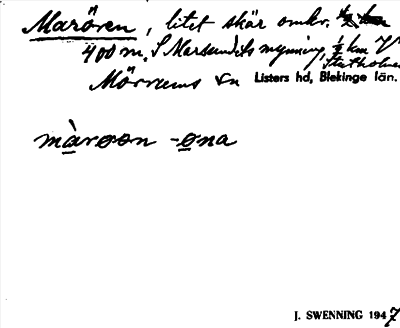 Marören, litet skär omkr.
400 m. S Marsundets mynning, ½ km
Mörrums sn Listers hd, Blekinge län.
màrøən -øna
J. SWENNING 1947